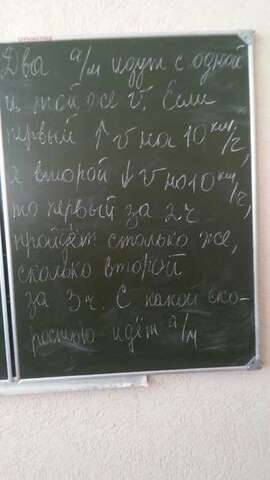 Два а/м идут с одной
и той же v. Если
первый ↑ v на 10 км/г,
а второй ↓ v на 10 км/г,
то первый за 2ч
пройдёт столько же,
сколько второй
за 3ч. С какой ско-
ростью идёт а/м